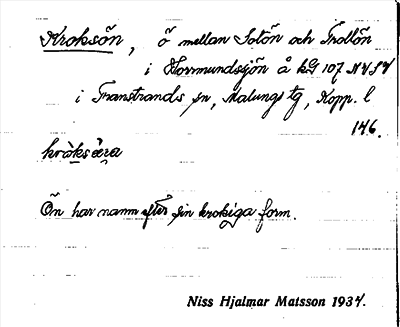 Kroksön, ö mellan Sotön och Trollön
i Horrmundsjön å kbl 107 NV SV
i Transtrands sn, Malungs tg, Kopp. l
146.
kråksöra
Ön har namn efter sin krokiga form.
Niss Hjalmar Matsson 1934.